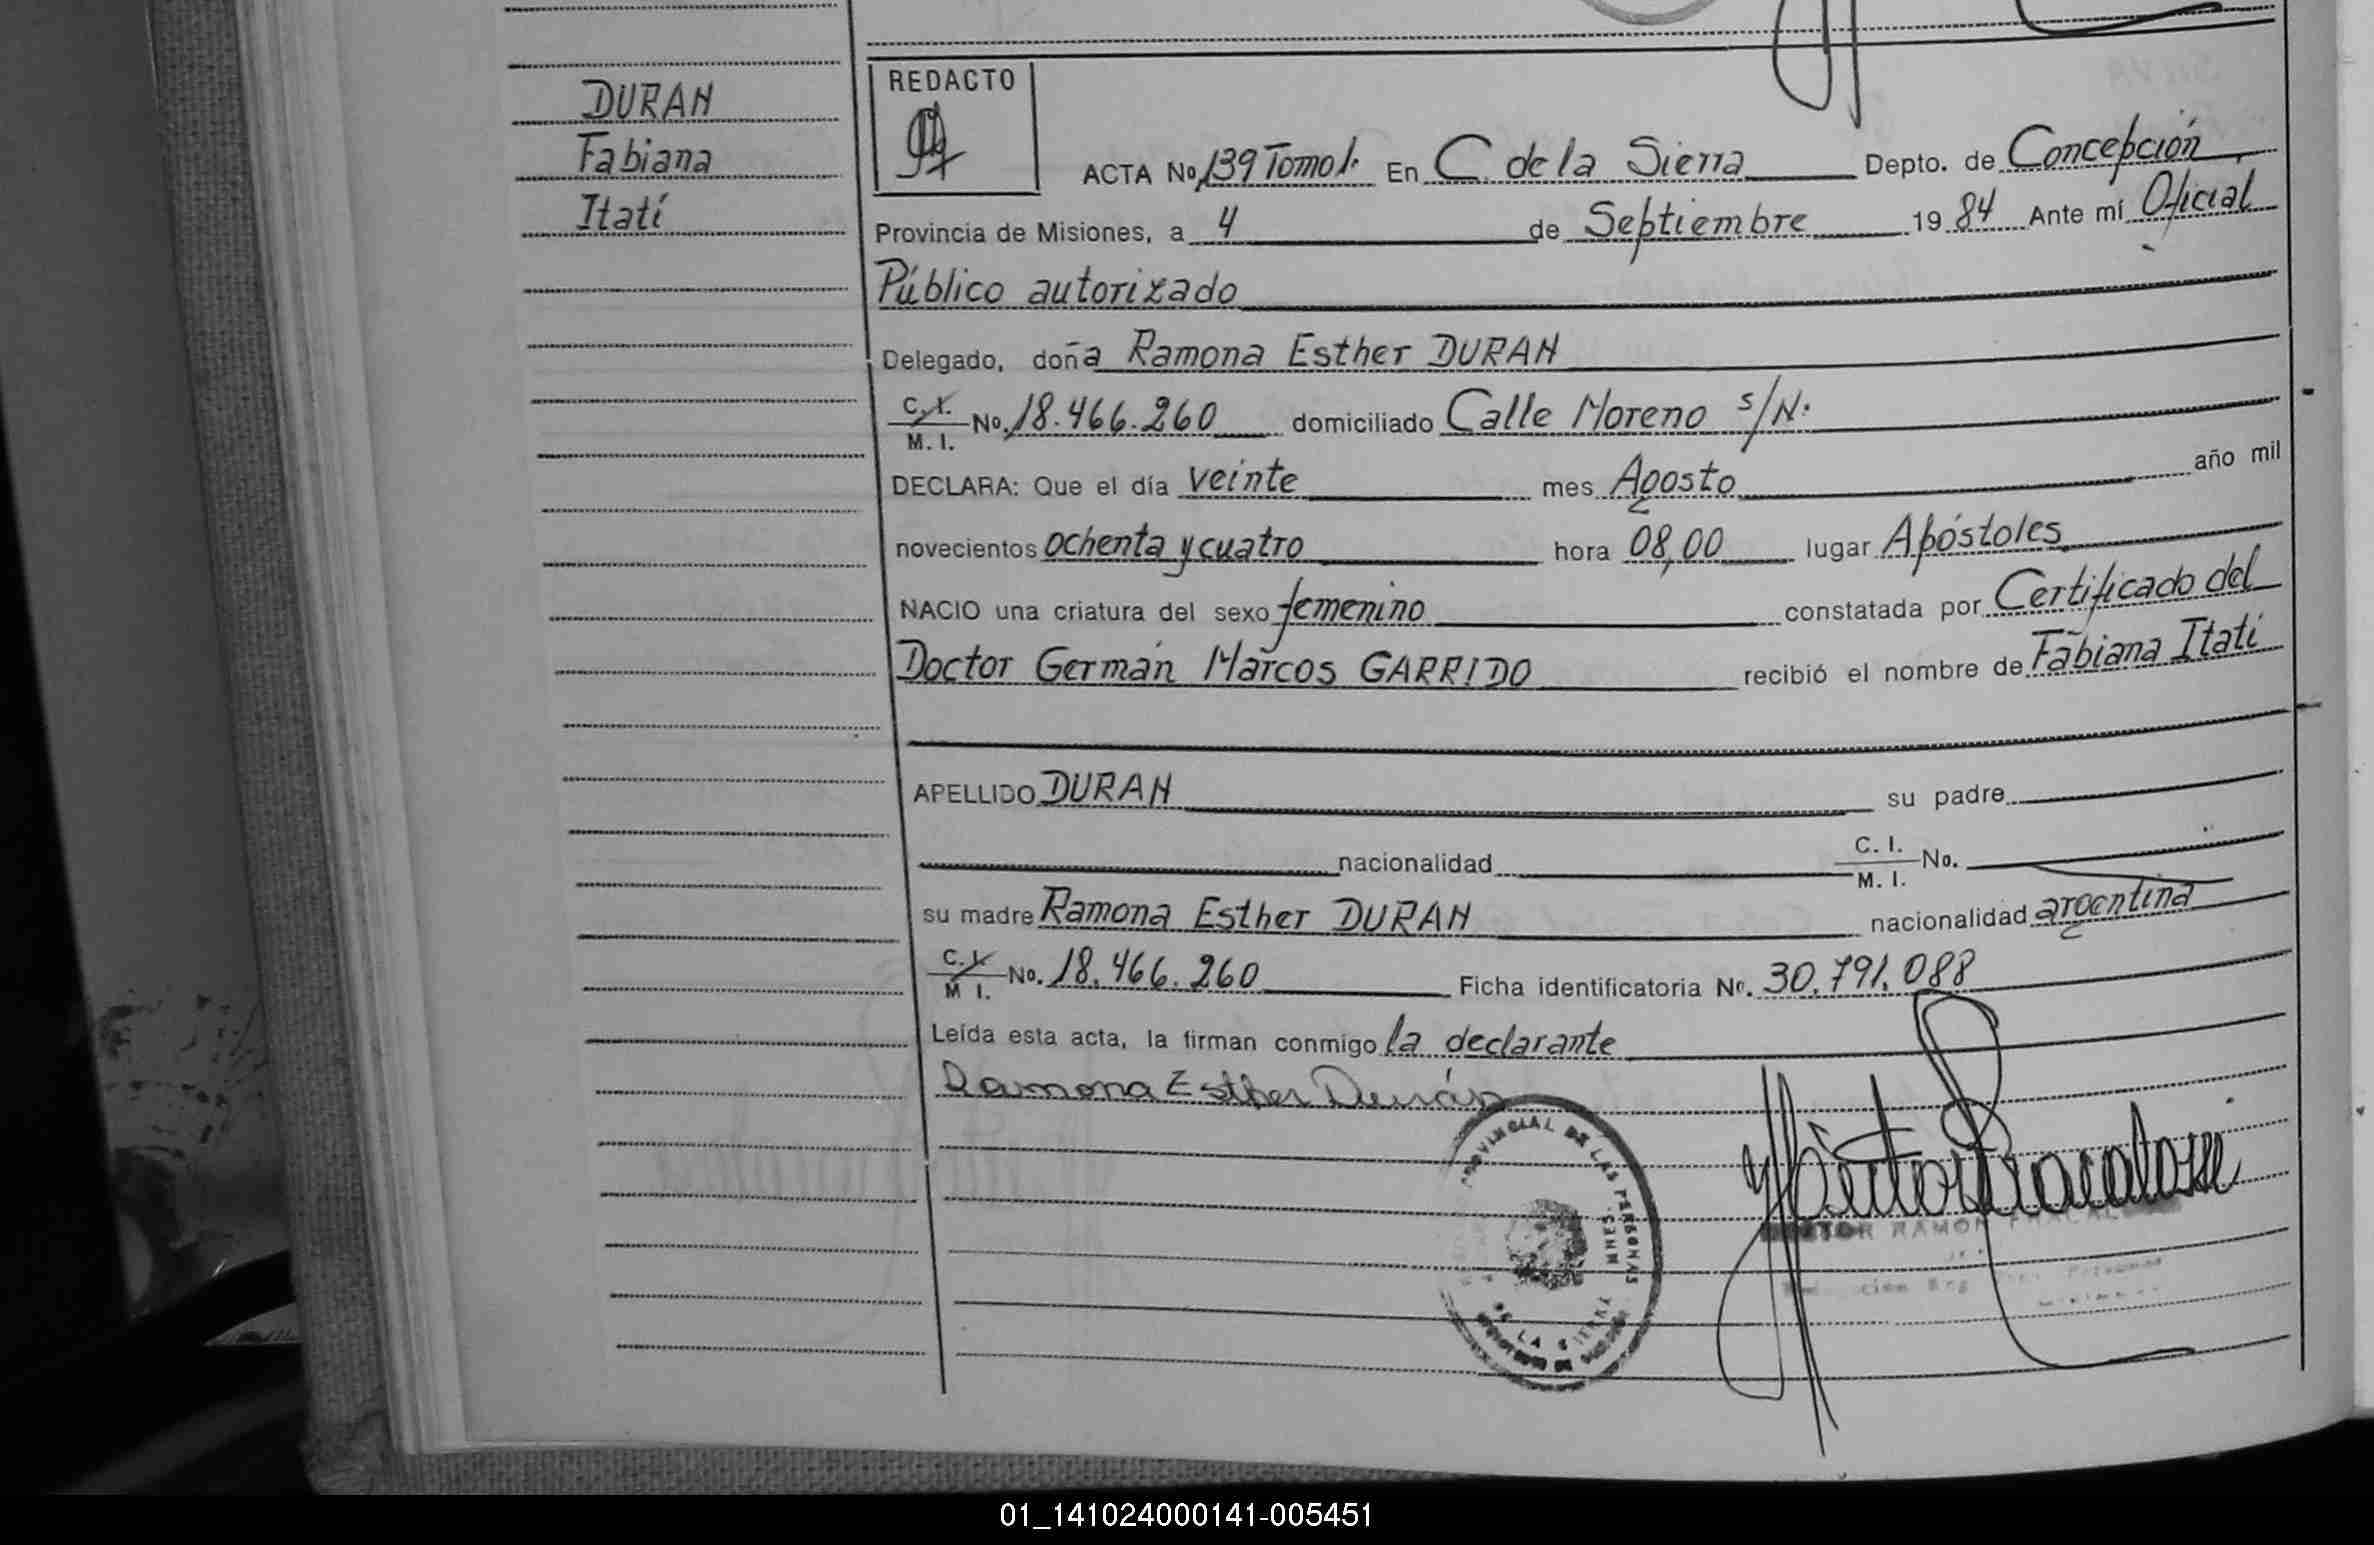 DURAN
Fabiana
Itatí
REDACTO
ACTA No 139 Tomo 1. En C. de la Sierra Depto. de Concepción
Provincia de Misiones, a 4 de Septiembre 1984 Ante mí Oficial
Público autorizado
Delegado, doña Ramona Esther DURAN
C. I. / M. I. No. 18.466.260 domiciliado Calle Moreno s/N.
DECLARA: Que el día veinte mes Agosto año mil
novecientos ochenta y cuatro hora 08,00 lugar Apóstoles
NACIO una criatura del sexo femenino constatada por Certificado del
Doctor Germán Marcos GARRIDO recibió el nombre de Fabiana Itatí
APELLIDO DURAN su padre
nacionalidad C. I. / M. I. No.
su madre Ramona Esther DURAN nacionalidad argentina
C. I. / M I. No. 18.466.260 Ficha identificatoria No. 30.791.088
Leída esta acta, la firman conmigo la declarante
Ramona Esther Durán
PROVINCIAL DE LAS PERSONAS
DE LA SIERRA
RAMON
01_141024000141-005451